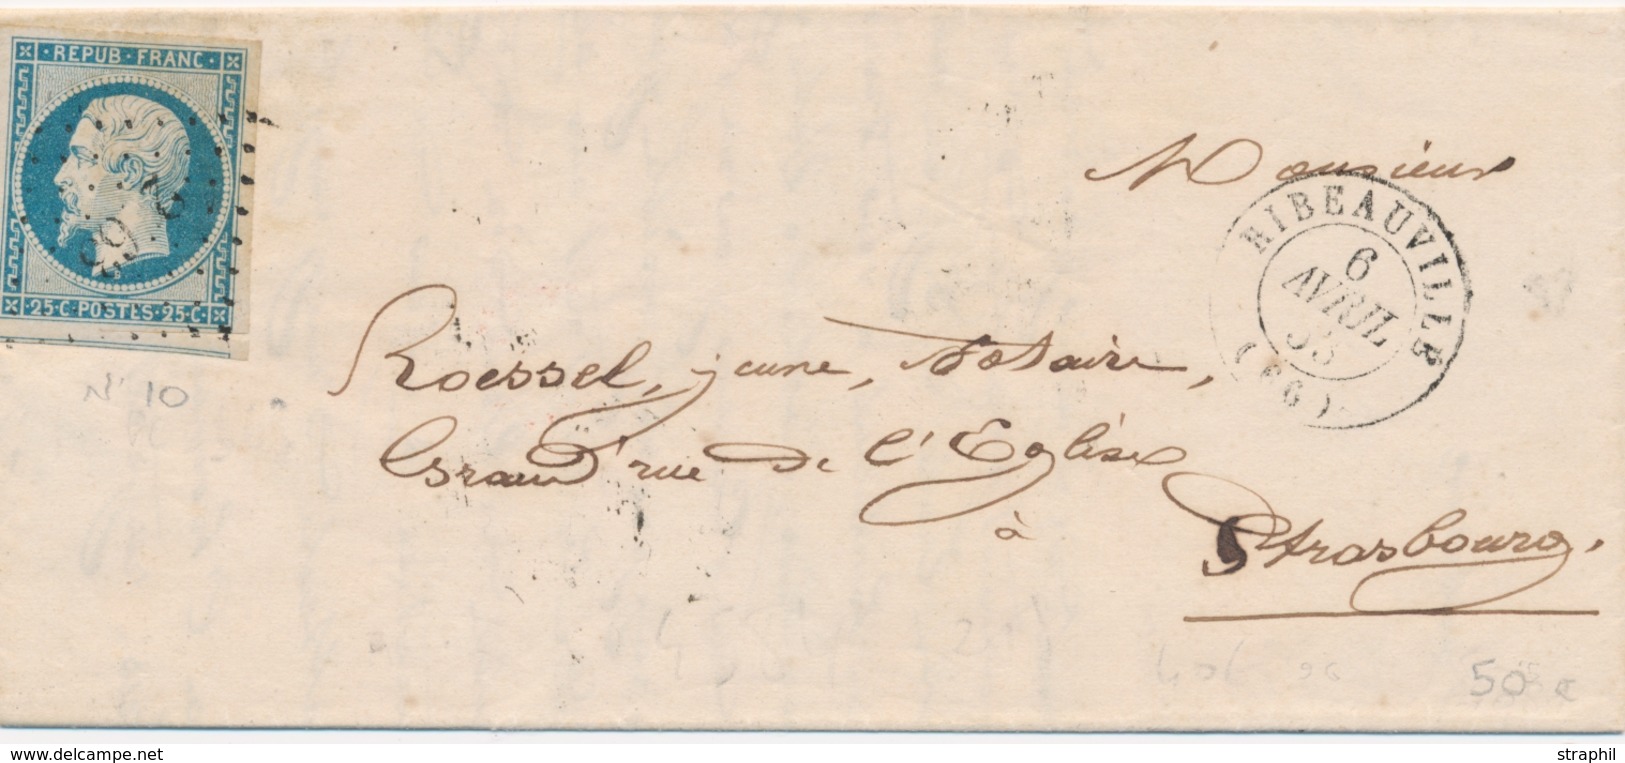 REPUB · FRANC ·
25 · C · POSTES · 25 · C ·
N° 10
Monsieur
RIBEAUVILLE
6
AVRIL
53
Roessel, jeune, Notaire,
Grand'rue de l'Eglise
à
Strasbourg.
50 €
www.delcampe.net
straphil